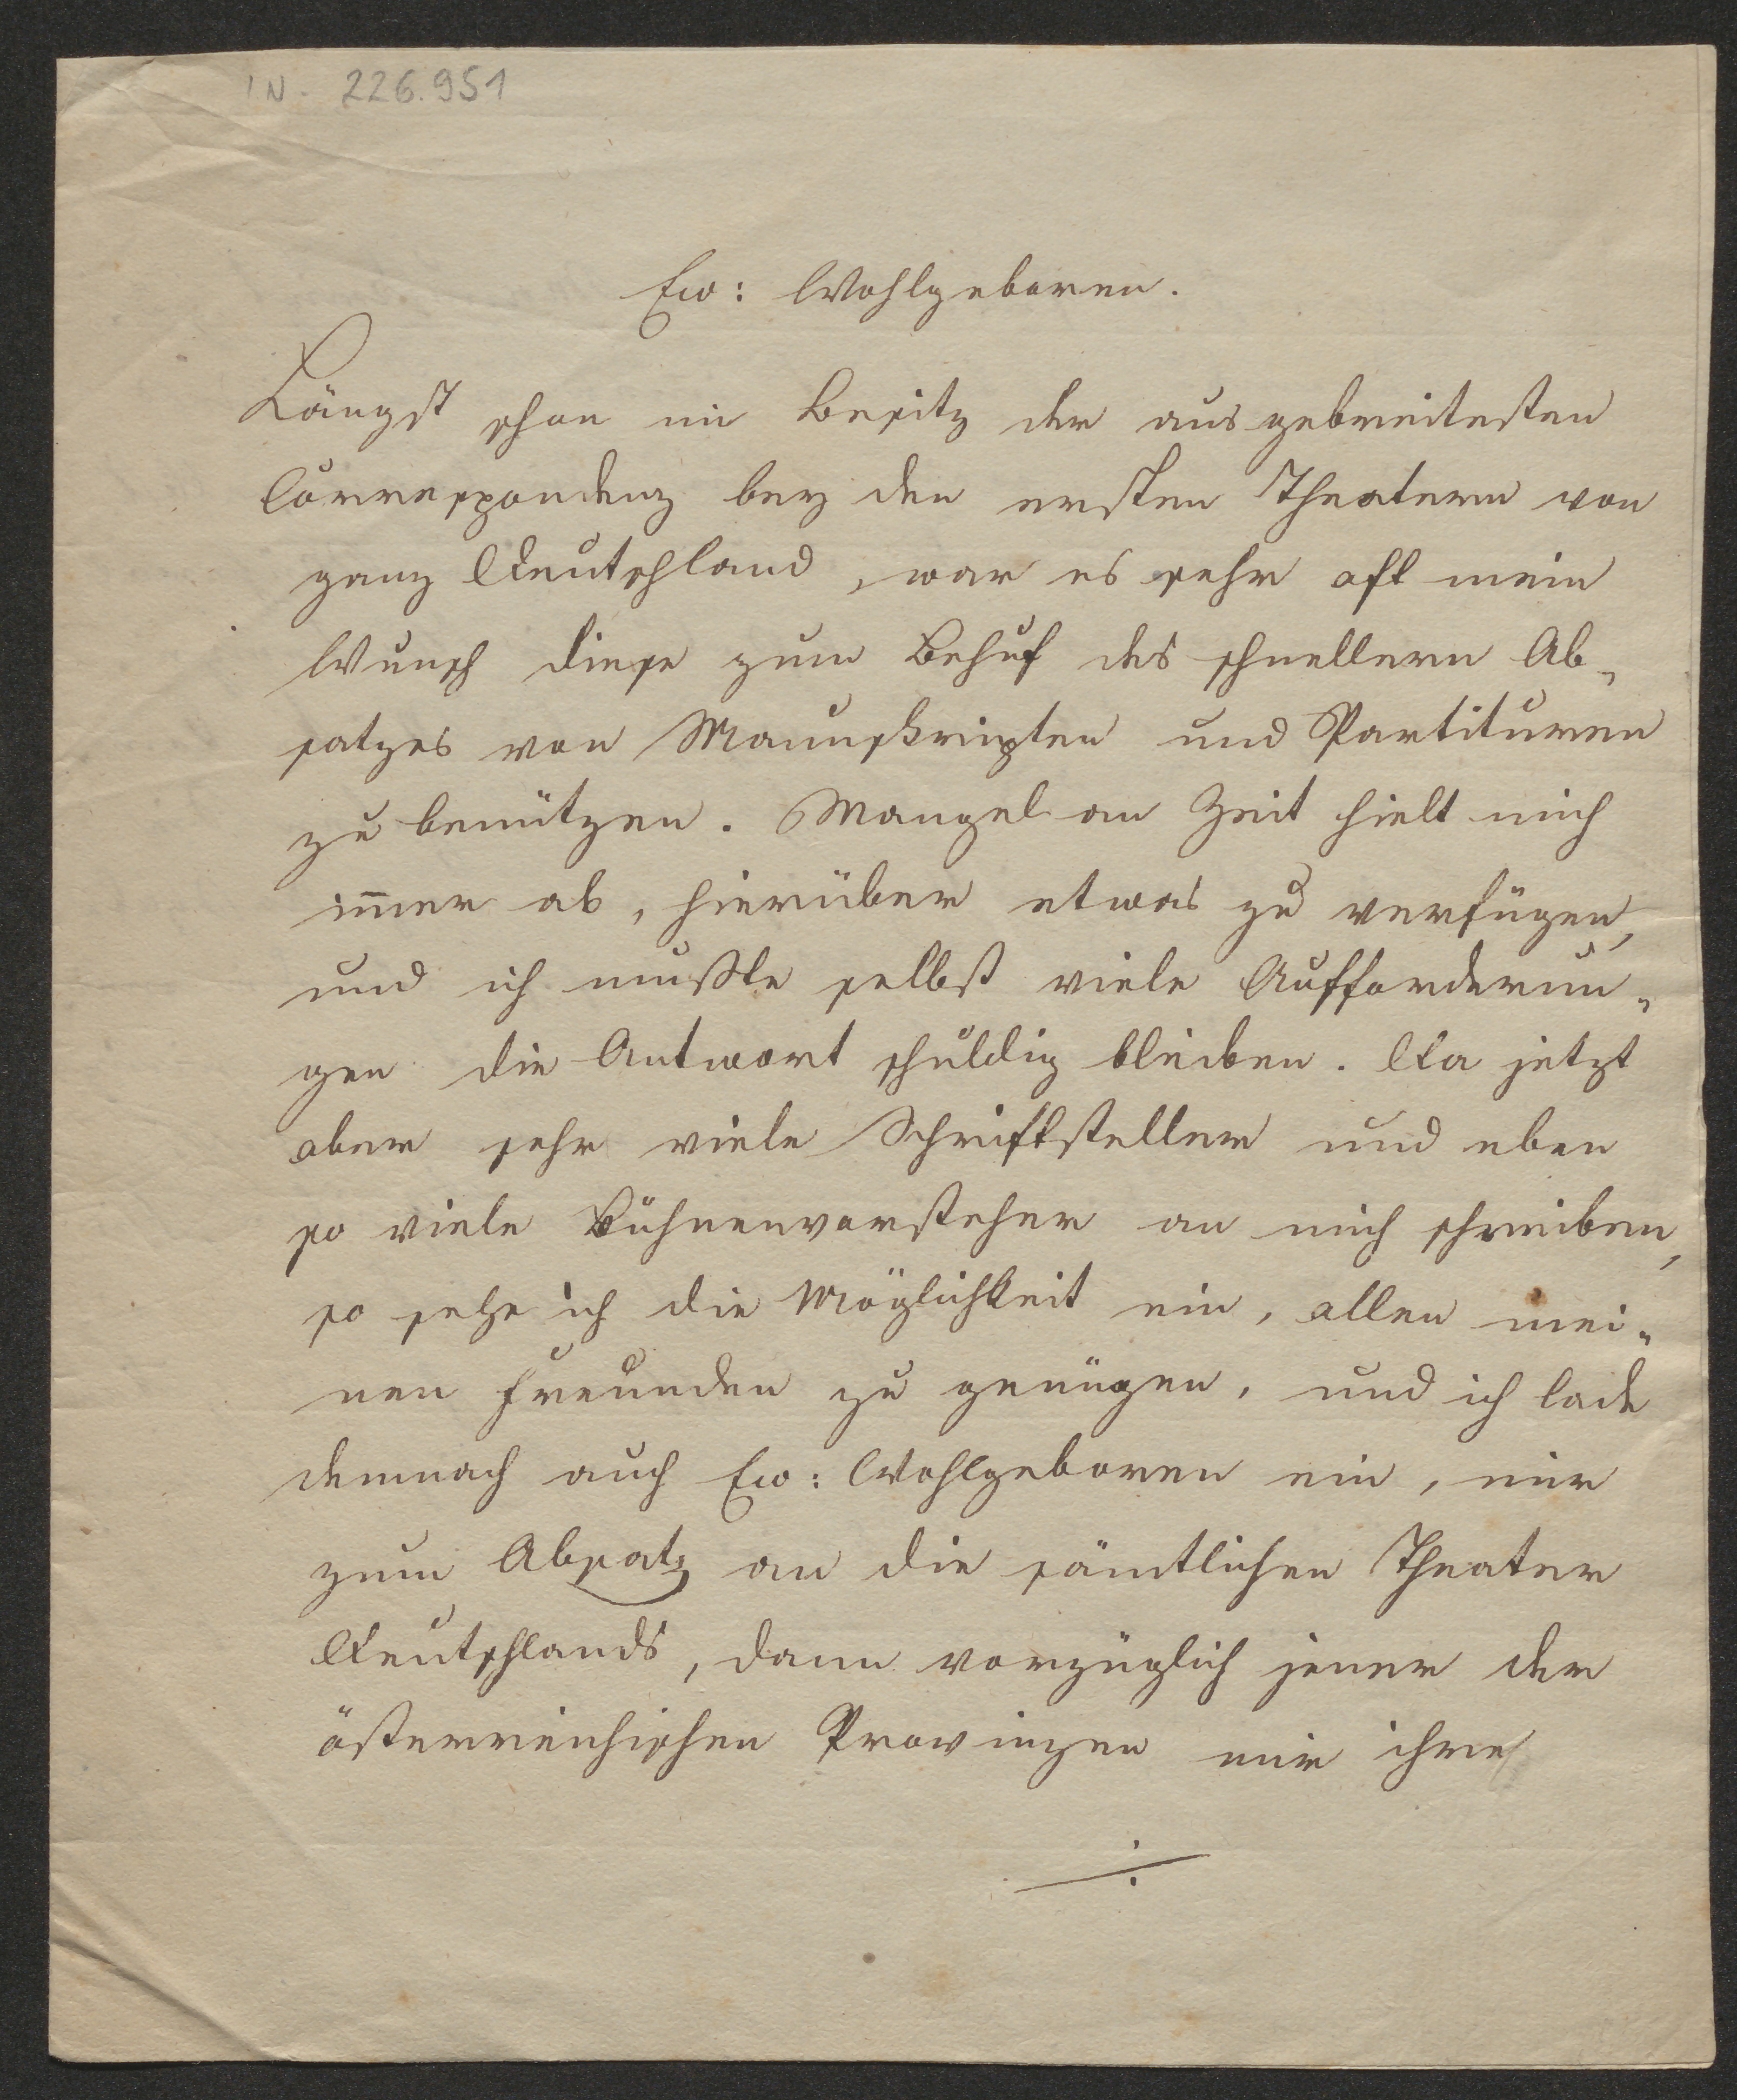 IN. 226.951
Ew: Wohlgeboren.
Längst schon im Besitz der ausgebreitesten
Correspondenz bey den ersten Theatern von
ganz Deutschland, war es sehr oft mein
Wunsch diese zum Behuf des schnellern Ab„
satzes von Manuskripten und Partituren
zu benützen. Mangel an Zeit hielt mich
im̅er ab, hierüber etwas zu verfügen,
und ich mußte selbst viele Aufforderun„
gen die Antwort schuldig bleiben. Da jetzt
aber sehr viele Schriftsteller und eben
so viele Bühnenvorsteher an mich schreiben,
so sehe ich die Möglichkeit ein, allen mei„
nen Freunden zu genügen, und ich lade
demnach auch Ew: Wohlgeboren ein, mir
zum Absatz an die sämtlichen Theater
Deutschlands, dann vorzüglich jener der
österreichischen Provinzen mir ihre